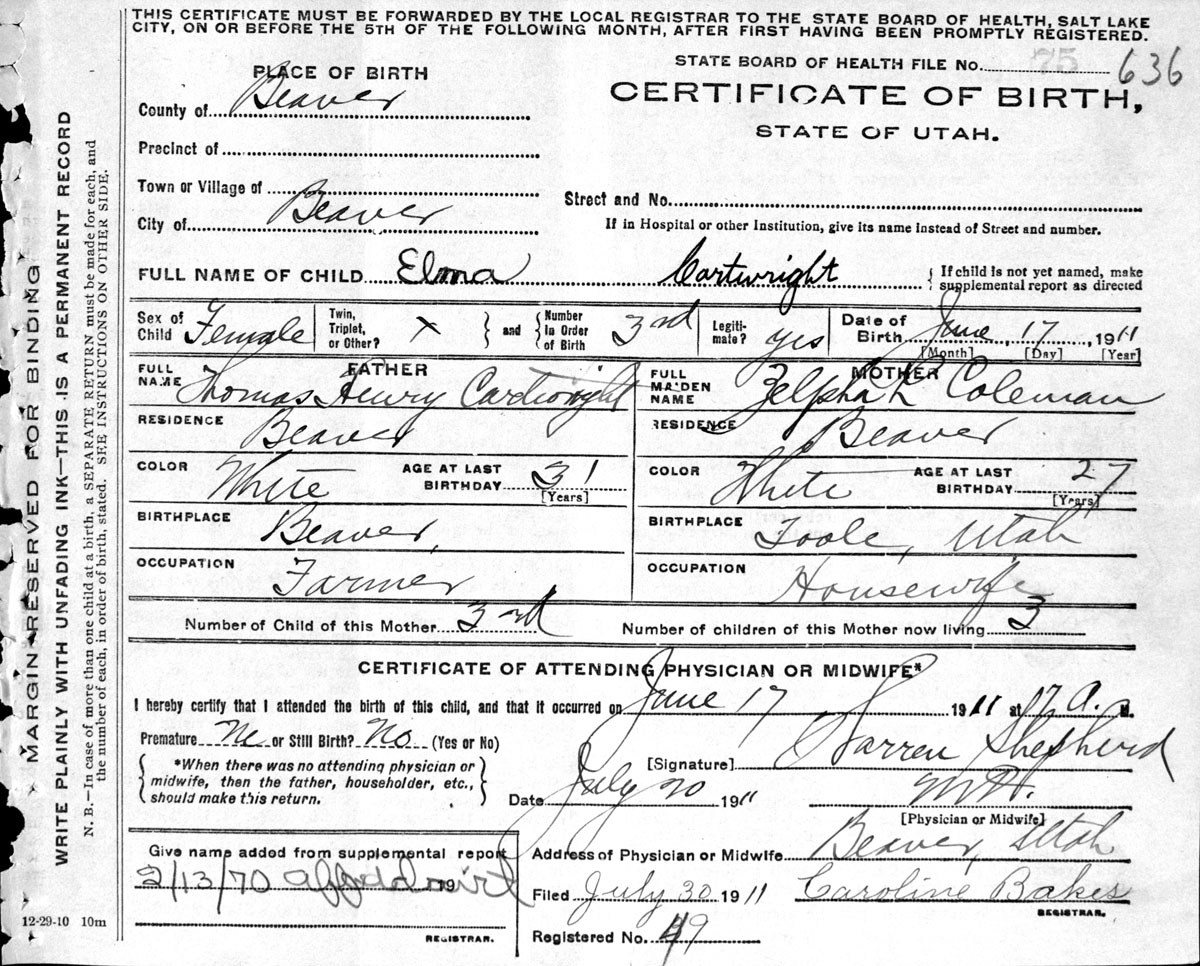 THIS CERTIFICATE MUST BE FORWARDED BY THE LOCAL REGISTRAR TO THE STATE BOARD OF HEALTH, SALT LAKE
CITY, ON OR BEFORE THE 5TH OF THE FOLLOWING MONTH, AFTER FIRST HAVING BEEN PROMPTLY REGISTERED.
PLACE OF BIRTH
STATE BOARD OF HEALTH FILE No. 75 636
County of Beaver
CERTIFICATE OF BIRTH,
STATE OF UTAH.
Precinct of
Town or Village of
Street and No.
City of Beaver
If in Hospital or other Institution, give its name instead of Street and number.
FULL NAME OF CHILD Elma Cartwright { If child is not yet named, make
supplemental report as directed
Sex of Child Female Twin, Triplet, or Other? X } and { Number in Order of Birth 3rd Legitimate? yes Date of Birth June, 17, 1911
[Month] [Day] [Year]
FATHER
FULL NAME Thomas Henry Cartwright
RESIDENCE Beaver
COLOR White AGE AT LAST BIRTHDAY 31
[Years]
BIRTHPLACE Beaver,
OCCUPATION Farmer
MOTHER
FULL MAIDEN NAME Zelpha L Coleman
RESIDENCE Beaver
COLOR White AGE AT LAST BIRTHDAY 27
[Years]
BIRTHPLACE Toole, Utah
OCCUPATION Housewife
Number of Child of this Mother 3rd Number of children of this Mother now living 3
CERTIFICATE OF ATTENDING PHYSICIAN OR MIDWIFE*
I hereby certify that I attended the birth of this child, and that it occurred on June 17 1911 at A. M.
Premature No or Still Birth? No (Yes or No)
[Signature] Warren Shepherd
{ *When there was no attending physician or
midwife, then the father, householder, etc.,
should make this return. }
Date July 20 1911 M.D.
[Physician or Midwife]
Give name added from supplemental report
2/13/70 affadavit 19
REGISTRAR.
Address of Physician or Midwife Beaver, Utah
Filed July 30 1911 Caroline Bakes
REGISTRAR.
Registered No. 49
12-29-10 10m
MARGIN RESERVED FOR BINDING
WRITE PLAINLY WITH UNFADING INK—THIS IS A PERMANENT RECORD
N. B.—In case of more than one child at a birth, a SEPARATE RETURN must be made for each, and
the number of each, in order of birth, stated. SEE INSTRUCTIONS ON OTHER SIDE.